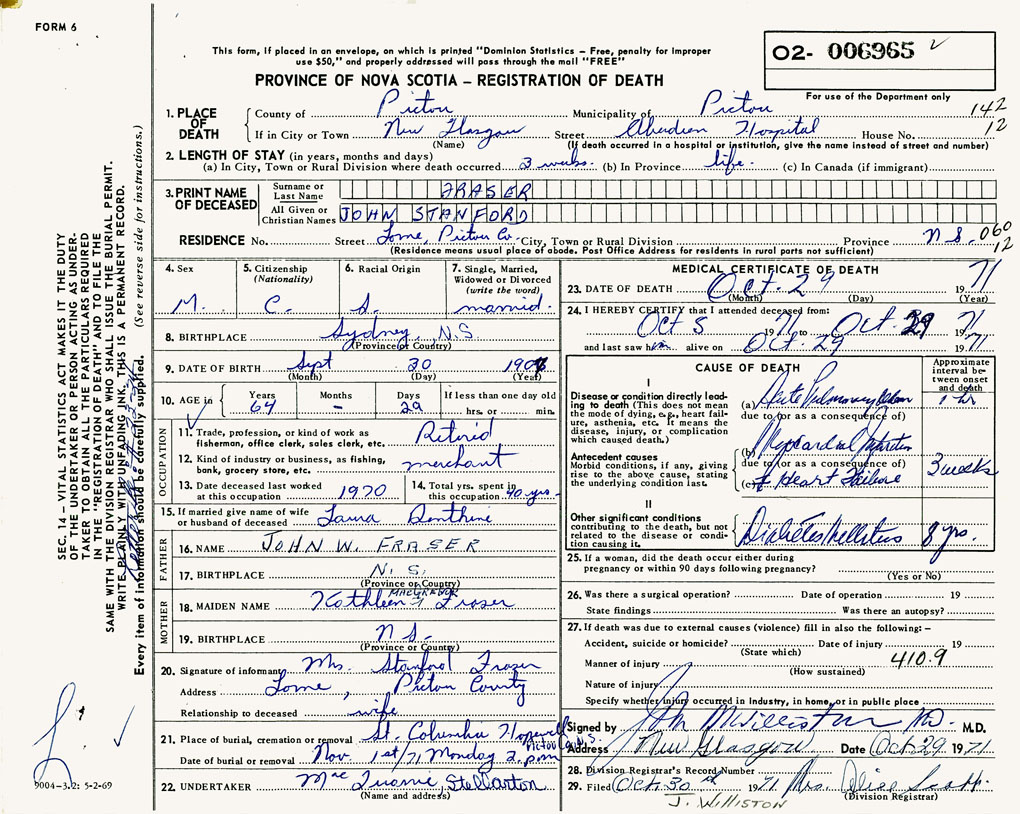 FORM 6
This form, if placed in an envelope, on which is printed "Dominion Statistics – Free, penalty for improper
use $50," and properly addressed will pass through the mail "FREE"
O2- 006965
PROVINCE OF NOVA SCOTIA – REGISTRATION OF DEATH
For use of the Department only
1. PLACE OF DEATH
County of Pictou Municipality of Pictou 142
If in City or Town New Glasgow Street Aberdeen Hospital House No. 12
(Name) (If death occurred in a hospital or institution, give the name instead of street and number)
2. LENGTH OF STAY (in years, months and days)
(a) In City, Town or Rural Division where death occurred 3 weeks. (b) In Province life. (c) In Canada (if immigrant)
3. PRINT NAME OF DECEASED
Surname or Last Name FRASER
All Given or Christian Names JOHN STANFORD
RESIDENCE No. Street Lorne, Pictou Co. City, Town or Rural Division Province N S. 060
12
(Residence means usual place of abode. Post Office Address for residents in rural parts not sufficient)
4. Sex M. 5. Citizenship (Nationality) C. 6. Racial Origin S. 7. Single, Married, Widowed or Divorced (write the word) married.
8. BIRTHPLACE Sydney, N.S
(Province or Country)
9. DATE OF BIRTH Sept 30 190
(Month) (Day) (Year)
10. AGE in Years 64 Months - Days 29 If less than one day old hrs. or min.
OCCUPATION
11. Trade, profession, or kind of work as fisherman, office clerk, sales clerk, etc. Retired
12. Kind of industry or business, as fishing, bank, grocery store, etc. merchant
13. Date deceased last worked at this occupation 1970 14. Total yrs. spent in this occupation 40 yrs.
15. If married give name of wife or husband of deceased Laura
FATHER
16. NAME JOHN W. FRASER
17. BIRTHPLACE N. S.
(Province or Country)
MOTHER
MACGREGOR
18. MAIDEN NAME Kathleen Fraser
19. BIRTHPLACE N S.
(Province or Country)
20. Signature of informant Mrs. Stanford Fraser
Address Lorne, Pictou County
Relationship to deceased wife
21. Place of burial, cremation or removal St. Columba Hopewell
Pictou Co. N.S.
Date of burial or removal Nov. 1st/71 Monday 2. pm
22. UNDERTAKER Stellarton
(Name and address)
MEDICAL CERTIFICATE OF DEATH
23. DATE OF DEATH Oct. 29 71
(Month) (Day) (Year)
24. I HEREBY CERTIFY that I attended deceased from:
Oct 5 1971 to Oct. 29 71
and last saw him alive on Oct. 29 1971
CAUSE OF DEATH
Approximate interval between onset and death
I
Disease or condition directly leading to death (This does not mean the mode of dying, e.g., heart failure, asthenia, etc. It means the disease, injury, or complication which caused death.)
(a) Acute Pulmonary Edema 1 hr
due to (or as a consequence of)
Antecedent causes
Morbid conditions, if any, giving rise to the above cause, stating the underlying condition last.
(b) Myocardial Infarction
due to (or as a consequence of) 3 weeks
(c) & Heart Failure
II
Other significant conditions contributing to the death, but not related to the disease or condition causing it.
Diabetes Mellitus 8 yrs.
25. If a woman, did the death occur either during
pregnancy or within 90 days following pregnancy?
(Yes or No)
26. Was there a surgical operation? Date of operation 19
State findings Was there an autopsy?
27. If death was due to external causes (violence) fill in also the following: –
Accident, suicide or homicide? Date of injury 19
(State which)
Manner of injury 410.9
(How sustained)
Nature of injury
Specify whether injury occurred in industry, in home, or in public place
Signed by J H Williston MD. M.D.
Address New Glasgow Date Oct. 29 1971
28. Division Registrar's Record Number
29. Filed Oct. 30 st 1971 Mrs. Alice
(Division Registrar)
J. WILLISTON
SEC. 14 – VITAL STATISTICS ACT MAKES IT THE DUTY
OF THE UNDERTAKER OR PERSON ACTING AS UNDER-
TAKER TO OBTAIN ALL THE PARTICULARS REQUIRED
IN THE "REGISTRATION OF DEATH" AND TO FILE THE
SAME WITH THE DIVISION REGISTRAR WHO SHALL ISSUE THE BURIAL PERMIT.
WRITE PLAINLY WITH UNFADING INK, THIS IS A PERMANENT RECORD.
Every item of information should be carefully supplied. (See reverse side for instructions.)
9004-3.2: 5-2-69